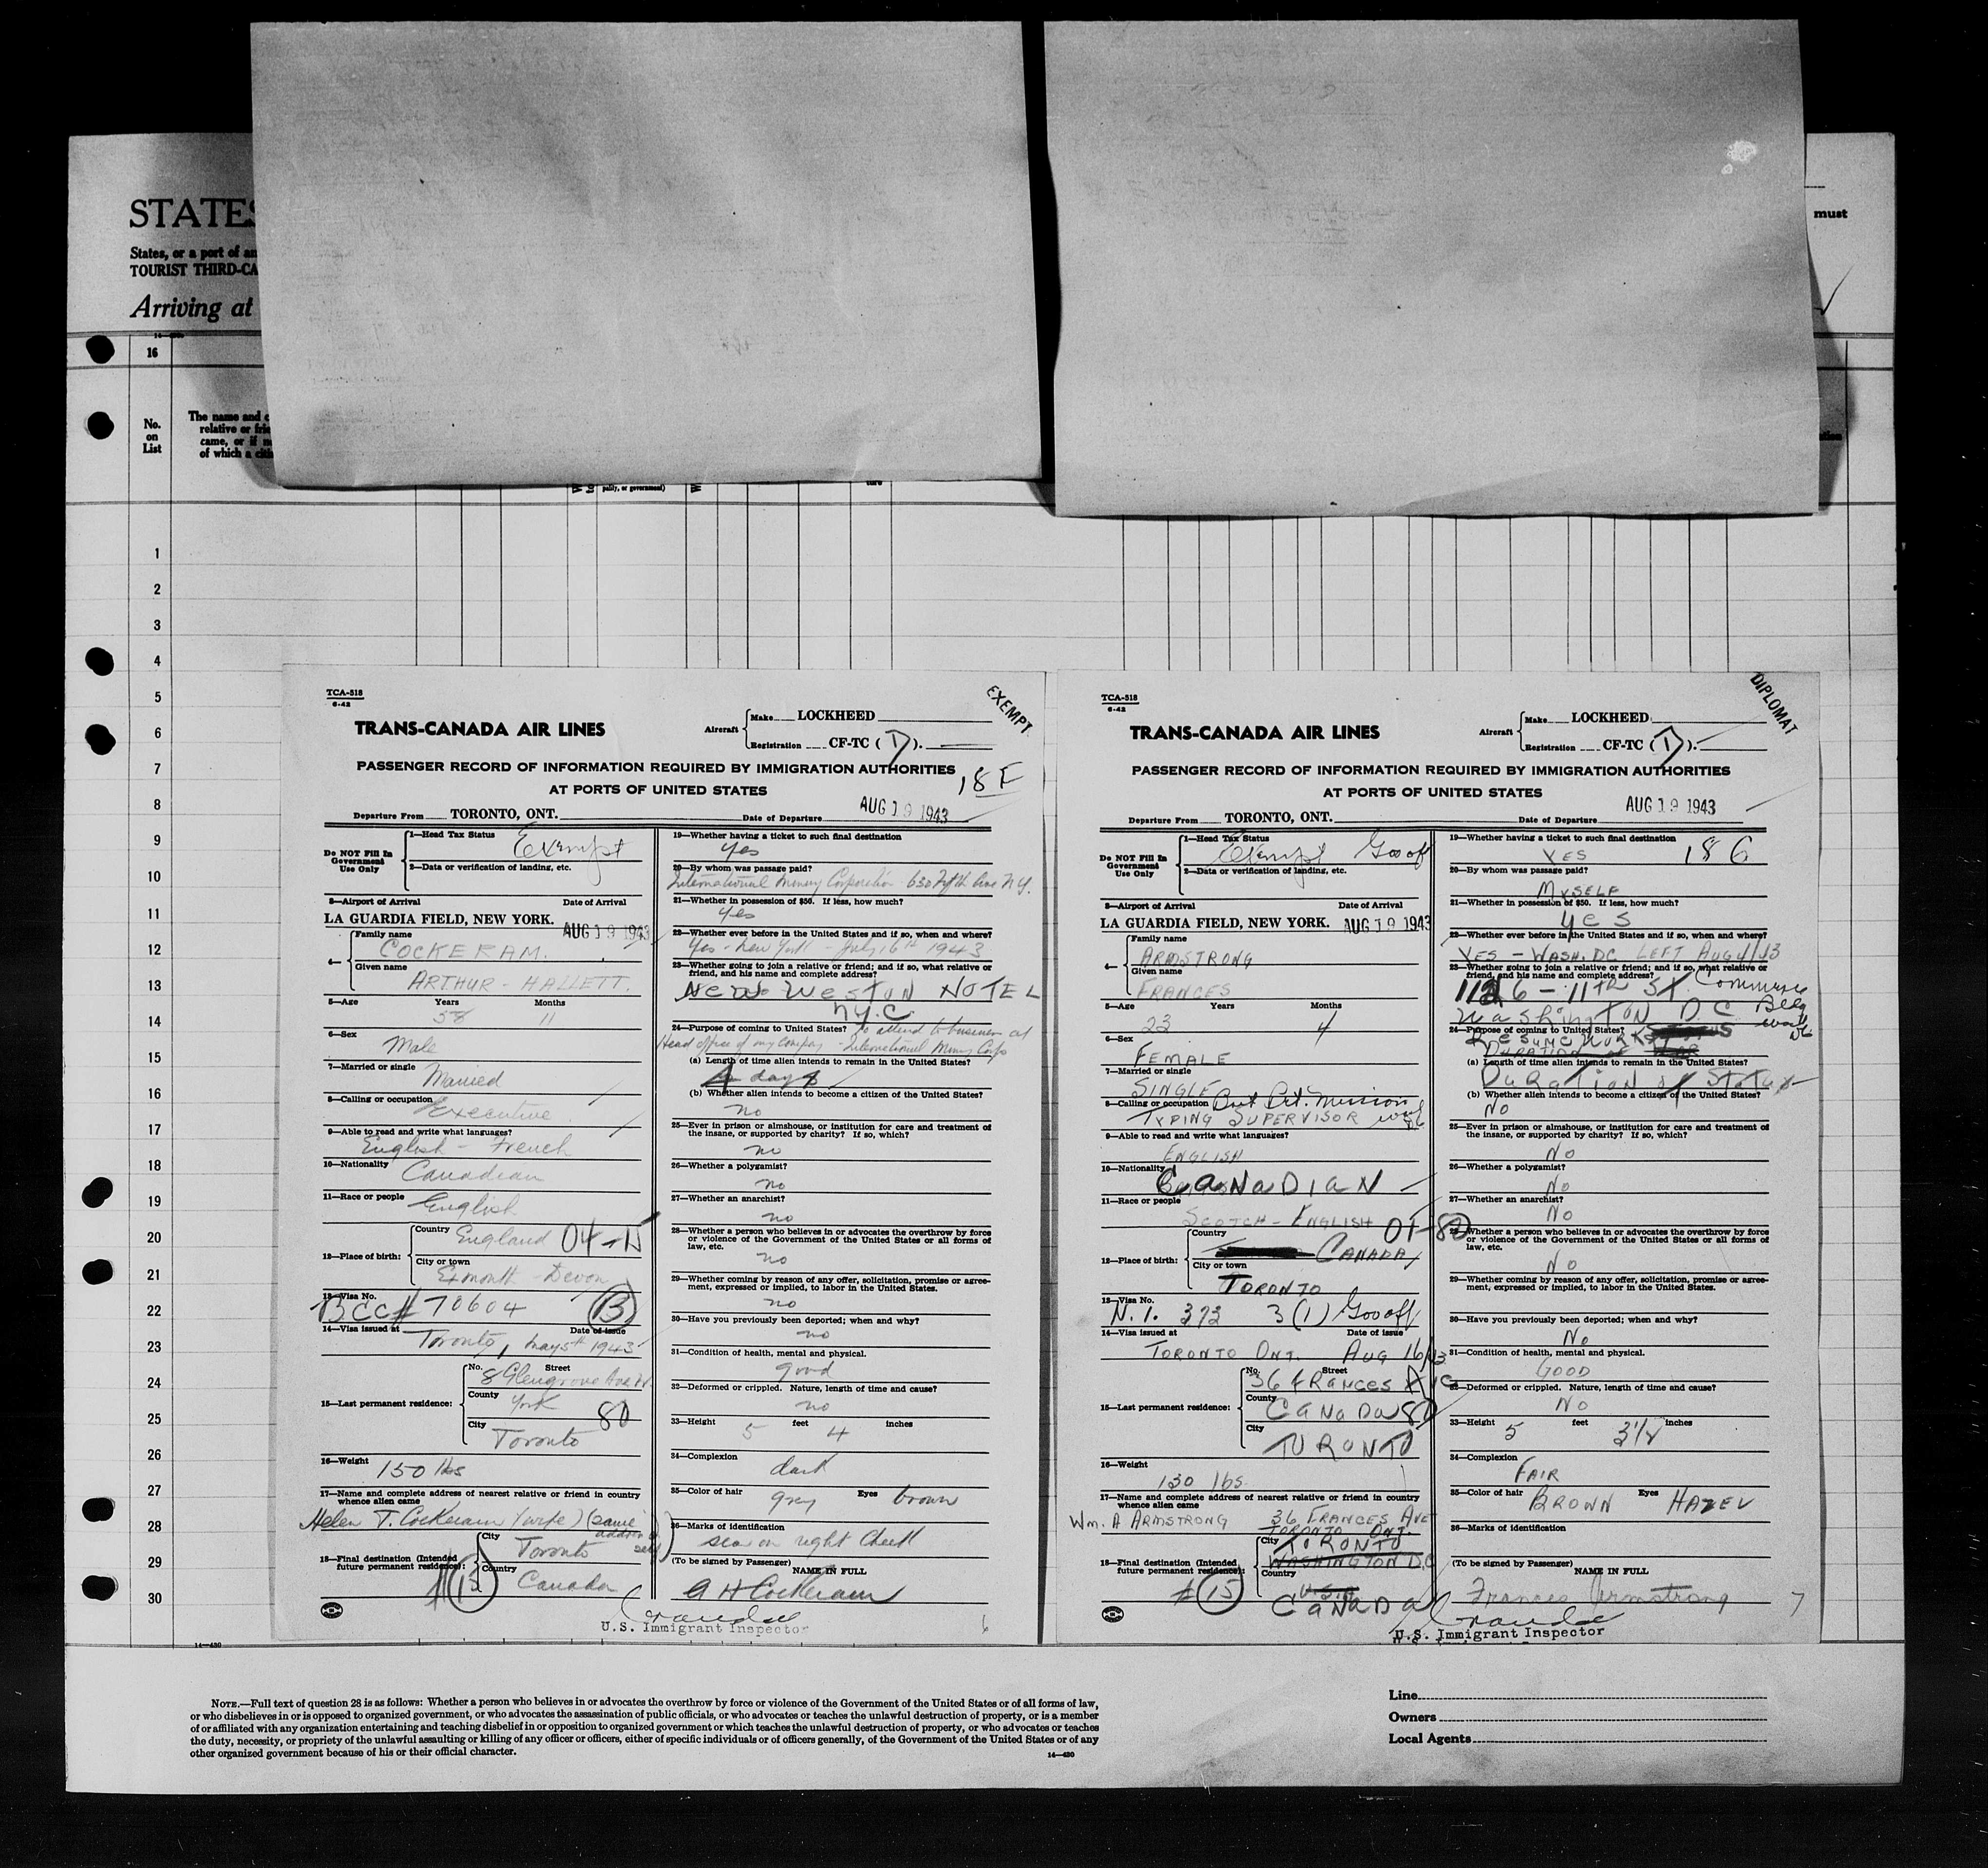 STATES
States, or a port of an
TOURIST THIRD-CA
Arriving at
must
16
No.
on
List
The name and c
relative or frie
came, or if n
of which a citi
pality, or government)
ture
1
2
3
4
5
6
7
8
9
10
11
12
13
14
15
16
17
18
19
20
21
22
23
24
25
26
27
28
29
30
TCA-518
6-42
EXEMPT
TRANS-CANADA AIR LINES
Aircraft
Make LOCKHEED
Registration CF-TC (D).
PASSENGER RECORD OF INFORMATION REQUIRED BY IMMIGRATION AUTHORITIES
AT PORTS OF UNITED STATES
18 F
Departure From TORONTO, ONT. Date of Departure AUG 19 1943
Do NOT Fill In
Government
Use Only
1—Head Tax Status Exempt
2—Data or verification of landing, etc.
3—Airport of Arrival Date of Arrival
LA GUARDIA FIELD, NEW YORK. AUG 19 1943
4—
Family name
COCKERAM.
Given name
ARTHUR - HALLETT.
5—Age Years Months
58 11
6—Sex
Male
7—Married or single
Married
8—Calling or occupation
Executive
9—Able to read and write what languages?
English - French
10—Nationality
Canadian
11—Race or people
English
12—Place of birth:
Country
England 04-15
City or town
Exmouth - Devon
13—Visa No.
BCC# 70604 B
14—Visa issued at Date of issue
Toronto, May 5th 1943
15—Last permanent residence:
No. Street
8 Glengrove Ave W.
County
York 80
City
Toronto
16—Weight
150 lbs
17—Name and complete address of nearest relative or friend in country
whence alien came
Helen T. Cockeram (wife) (same address as self)
18—Final destination (Intended
future permanent residence):
City
Toronto
Country
Canada
#15
19—Whether having a ticket to such final destination
yes
20—By whom was passage paid?
International Mining Corporation 630 Fifth Ave N.Y.
21—Whether in possession of $50. If less, how much?
yes
22—Whether ever before in the United States and if so, when and where?
Yes - New York - July 16th 1943
23—Whether going to join a relative or friend; and if so, what relative or
friend, and his name and complete address?
NEW WESTON HOTEL
N.Y.C.
24—Purpose of coming to United States? To attend to business at
Head office of my company - International Mining Corp
(a) Length of time alien intends to remain in the United States?
4 days
(b) Whether alien intends to become a citizen of the United States?
no
25—Ever in prison or almshouse, or institution for care and treatment of
the insane, or supported by charity? If so, which?
no
26—Whether a polygamist?
no
27—Whether an anarchist?
no
28—Whether a person who believes in or advocates the overthrow by force
or violence of the Government of the United States or all forms of
law, etc.
no
29—Whether coming by reason of any offer, solicitation, promise or agree-
ment, expressed or implied, to labor in the United States.
no
30—Have you previously been deported; when and why?
no
31—Condition of health, mental and physical.
good
32—Deformed or crippled. Nature, length of time and cause?
no
33—Height feet inches
5 4
34—Complexion
dark
35—Color of hair Eyes
grey brown
36—Marks of identification
scar on right cheek
(To be signed by Passenger) NAME IN FULL
A H Cockeram
U.S. Immigrant Inspector
6
TCA-518
6-42
DIPLOMAT
TRANS-CANADA AIR LINES
Aircraft
Make LOCKHEED
Registration CF-TC (D).
PASSENGER RECORD OF INFORMATION REQUIRED BY IMMIGRATION AUTHORITIES
AT PORTS OF UNITED STATES
Departure From TORONTO, ONT. Date of Departure AUG 19 1943
Do NOT Fill In
Government
Use Only
1—Head Tax Status
Exempt Gov off
2—Data or verification of landing, etc.
3—Airport of Arrival Date of Arrival
LA GUARDIA FIELD, NEW YORK. AUG 19 1943
4—
Family name
ARMSTRONG
Given name
FRANCES
5—Age Years Months
23 4
6—Sex
FEMALE
7—Married or single
SINGLE
8—Calling or occupation Brit Art. Mission
TYPING SUPERVISOR
9—Able to read and write what languages?
ENGLISH
10—Nationality
CANADIAN
11—Race or people
SCOTCH - ENGLISH 01-80
12—Place of birth:
Country
CANADA
City or town
TORONTO
13—Visa No.
N.I. 372 3(1) Gov off
14—Visa issued at Date of issue
TORONTO ONT. AUG 16/43
15—Last permanent residence:
No. Street
36 FRANCES AVE
County
CANADA 80
City
TORONTO
16—Weight
130 lbs.
17—Name and complete address of nearest relative or friend in country
whence alien came
WM. A ARMSTRONG 36 FRANCES AVE
TORONTO ONT.
18—Final destination (Intended
future permanent residence):
City
TORONTO
WASHINGTON D.C
Country
U.S.A
CANADA
#15
19—Whether having a ticket to such final destination
YES 18 G
20—By whom was passage paid?
MYSELF
21—Whether in possession of $50. If less, how much?
yes
22—Whether ever before in the United States and if so, when and where?
YES - WASH. DC LEFT AUG 4/43
23—Whether going to join a relative or friend; and if so, what relative or
friend, and his name and complete address?
1126 - 11TH ST. Commerce Bldg
Washington D C
24—Purpose of coming to United States?
RESUME WORK
DURATION OF WAR
(a) Length of time alien intends to remain in the United States?
DURATION of Status
(b) Whether alien intends to become a citizen of the United States?
No
25—Ever in prison or almshouse, or institution for care and treatment of
the insane, or supported by charity? If so, which?
No
26—Whether a polygamist?
No
27—Whether an anarchist?
No
28—Whether a person who believes in or advocates the overthrow by force
or violence of the Government of the United States or all forms of
law, etc.
No
29—Whether coming by reason of any offer, solicitation, promise or agree-
ment, expressed or implied, to labor in the United States.
30—Have you previously been deported; when and why?
No
31—Condition of health, mental and physical.
GOOD
32—Deformed or crippled. Nature, length of time and cause?
NO
33—Height feet inches
5 3 1/2
34—Complexion
FAIR
35—Color of hair Eyes
BROWN HAZEL
36—Marks of identification
(To be signed by Passenger) NAME IN FULL
Frances Armstrong
7
U.S. Immigrant Inspector
14—430
NOTE.—Full text of question 28 is as follows: Whether a person who believes in or advocates the overthrow by force or violence of the Government of the United States or of all forms of law,
or who disbelieves in or is opposed to organized government, or who advocates the assassination of public officials, or who advocates or teaches the unlawful destruction of property, or is a member
of or affiliated with any organization entertaining and teaching disbelief in or opposition to organized government or which teaches the unlawful destruction of property, or who advocates or teaches
the duty, necessity, or propriety of the unlawful assaulting or killing of any officer or officers, either of specific individuals or of officers generally, of the Government of the United States or of any
other organized government because of his or their official character.
14—430
Line
Owners
Local Agents